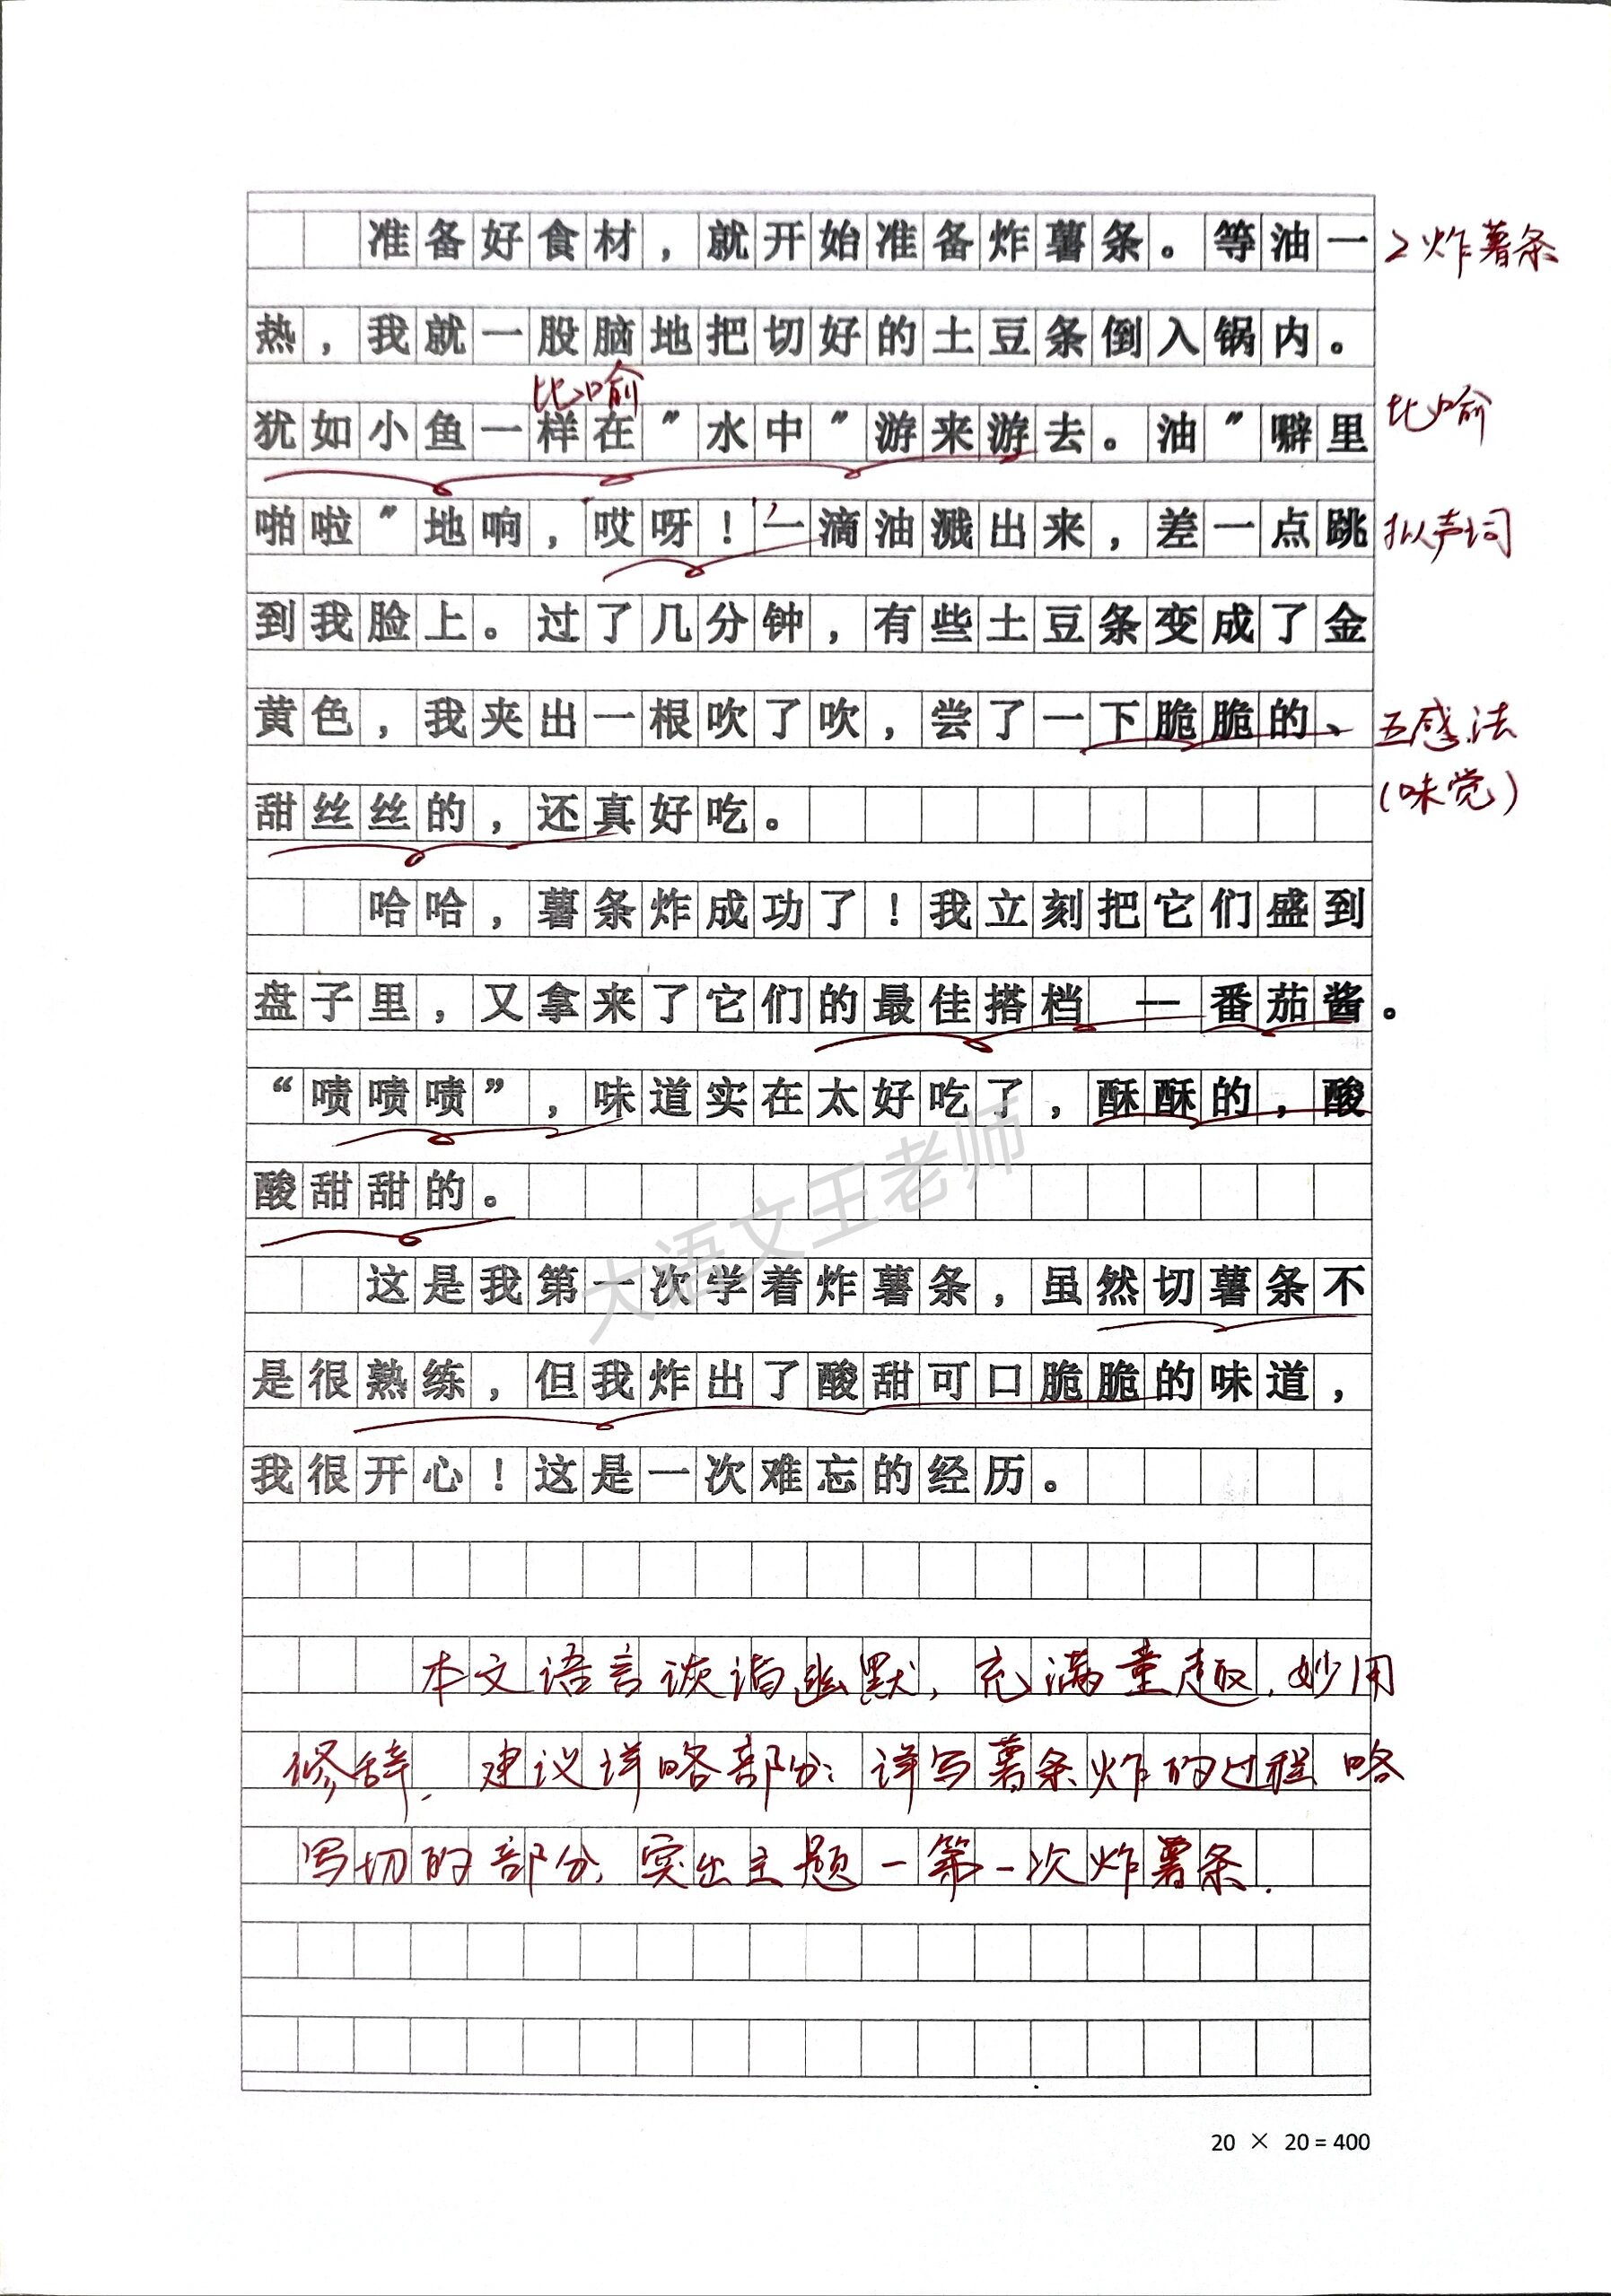 准备好食材，就开始准备炸薯条。等油一
2 炸薯条
热，我就一股脑地把切好的土豆条倒入锅内。
比喻
犹如小鱼一样在”水中”游来游去。油”噼里
比喻
啪啦”地响，哎呀！一滴油溅出来，差一点跳
拟声词
到我脸上。过了几分钟，有些土豆条变成了金
黄色，我夹出一根吹了吹，尝了一下脆脆的、
五感法
(味觉)
甜丝丝的，还真好吃。
哈哈，薯条炸成功了！我立刻把它们盛到
盘子里，又拿来了它们的最佳搭档 — 番茄酱。
“啧啧啧”，味道实在太好吃了，酥酥的，酸
酸甜甜的。
大语文王老师
这是我第一次学着炸薯条，虽然切薯条不
是很熟练，但我炸出了酸甜可口脆脆的味道，
我很开心！这是一次难忘的经历。
本文语言诙谐幽默，充满童趣，妙用
修辞. 建议详略部分：详写薯条炸的过程 略
写切的部分，突出主题一第一次炸薯条.
20 × 20 = 400